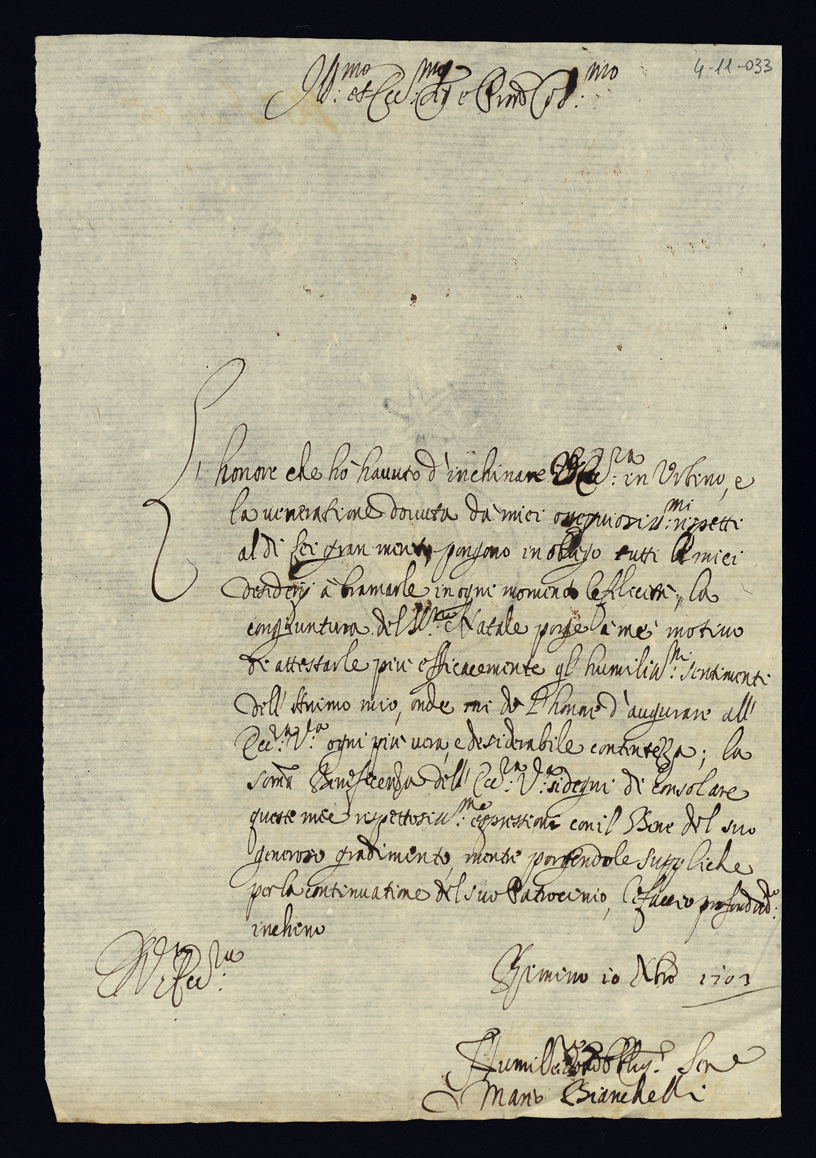 4-11-033
Ill:mo et Ecc:mo Sig e Pron Col:mo
L'honore che hò hauuto d'inchinare V Ecc:za in Urbino, e
la ueneratione douuta da miei ossequiosiss:mi rispetti
al di Lei gran merito, porgono in obligo tutti li miei
desiderij à bramarle in ogni momento le felicità, la
congiuntura del S:mo Natale porge à me motiuo
di attestarle più efficacemente gl'humiliss:mi sentimenti
dell'Animo mio, onde mi dò l'honore d'augurare all'
Ecc:za V:ra ogni più uera, e desiderabile contentezza; la
somma Beneficenza dell'Ecc:za V:ra si degni di consolare
queste mie rispettosiss:me espressioni con il Bene del suo
generoso gradimento, mentre porgendole suppliche
per la continuatione del suo Patrocinio, le faccio profond
inchino
Di V Ecc:za
Rimino 10 Xbre 1703
Humiliss Deuot Oblig: Ser
Mario Bianchelli